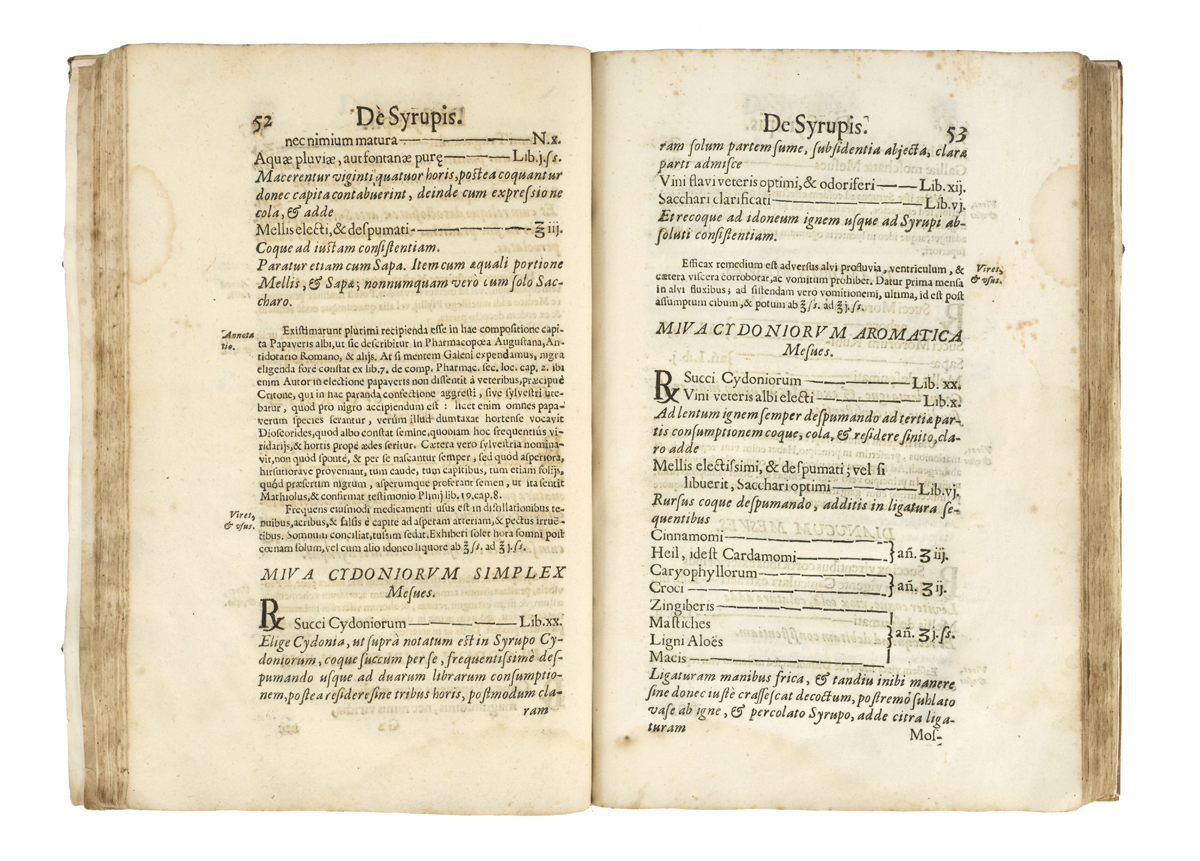 52 De Syrupis.
nec nimium matura N.x.
Aquæ pluviæ, aut fontanæ purę Lib.j.ſs.
Macerentur viginti quatuor horis, poſtea coquantur
donec capita contabuerint, deinde cum expreſſione
cola, & adde
Mellis electi, & deſpumati ℥ iij.
Coque ad iuſtam conſiſtentiam.
Paratur etiam cum Sapa. Item cum æquali portione
Mellis, & Sapæ; nonnumquam verò cum ſolo Sac-
charo.
Annota
tio.
Exiſtimarunt plurimi recipienda eſse in hac compoſitione capi-
ta Papaveris albi, ut ſic deſcribitur in Pharmacopœa Auguſtana, An-
tidotario Romano, & alijs. At ſi mentem Galeni expendamus, nigra
eligenda forè conſtat ex lib.7. de comp. Pharmac. ſec. loc. cap. 2. ibi
enim Autor in electione papaveris non diſſentit à veteribus, præcipuè
Critone, qui in hac paranda confectione aggreſti, ſive ſylveſtri ute-
batur, quod pro nigro accipiendum eſt : licet enim omnes papa-
verum ſpecies ſerantur, verùm illud dumtaxat hortenſe vocavit
Dioſcorides, quod albo conſtat ſemine, quoniam hoc frequentiùs vi-
ridarijs, & hortis propè ædes ſeritur. Cætera vero ſylveſtria nomina-
vit, non quòd ſponte, & per ſe naſcantur ſemper, ſed quòd aſperiora,
hirſutiorave proveniant, tum caude, tum capitibus, tum etiam folijs,
quòd præſertim nigrum, aſperumque proferant ſemen, ut ita ſentit
Mathiolus, & confirmat teſtimonio Plinij lib. 19. cap. 8.
Vires,
& uſus.
Frequens eiuſmodi medicamenti uſus eſt in diſtillationibus te-
nuibus, acribus, & falſis è capite ad aſperam arteriam, & pectus irruẽ-
tibus. Somnum conciliat, tuſſim ſedat. Exhiberi ſolet hora ſomni poſt
cœnam ſolum, vel cum alio idoneo liquore ab ℥.ſs. ad ℥ j.ſs.
MIVA CYDONIORVM SIMPLEX
Meſues.
℞ Succi Cydoniorum Lib.xx.
Elige Cydonia, ut ſuprà notatum eſt in Syrupo Cy-
doniorum, coque ſuccum per ſe, frequentiſſimè deſ-
pumando uſque ad duarum librarum conſumptio-
nem, poſtea reſidere ſine tribus horis, poſtmodum cla-
ram
De Syrupis. 53
ram ſolum partem ſume, ſubſidentia abjecta, claræ
parti admiſce
Vini flavi veteris optimi, & odoriferi Lib.xij.
Sacchari clarificati Lib.vj.
Et recoque ad idoneum ignem uſque ad Syrupi ab-
ſoluti conſiſtentiam.
Vires,
& uſus.
Efficax remedium eſt adverſus alvi profluvia, ventriculum, &
cætera viſcera corroborat, ac vomitum prohibet. Datur prima menſa
in alvi fluxibus; ad ſiſtendam vero vomitionemi, ultima, id eſt poſt
aſſumptum cibum, & potum ab ℥.ſs. ad ℥ j.ſs.
MIVA CYDONIORVM AROMATICA
Meſues.
℞ Succi Cydoniorum Lib. xx.
Vini veteris albi electi Lib.x.
Ad lentum ignem ſemper deſpumando ad tertiæ par-
tis conſumptionem coque, cola, & reſidere ſinito, cla-
ro adde
Mellis electiſſimi, & deſpumati; vel ſi
libuerit, Sacchari optimi Lib.vj.
Rurſus coque deſpumando, additis in ligatura ſe-
quentibus
Cinnamomi
Heil, ideſt Cardamomi } añ. ʒ iij.
Caryophyllorum
Croci } añ. ʒ ij.
Zingiberis
Maſtiches
Ligni Aloës } añ. ʒ j.ſs.
Macis
Ligaturam manibus frica, & tandiu inibi manere
ſine donec iuſtè craſſeſcat decoctum, poſtremò ſublato
vaſe ab igne, & percolato Syrupo, adde citra liga-
turam
Moſ-